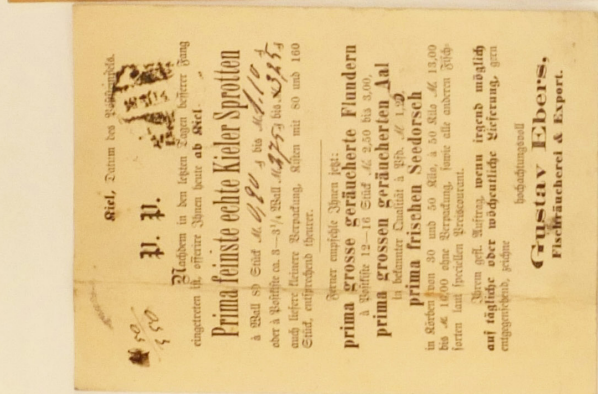 Kiel, Datum des Poststempels.
P. P.
Nachdem in den letzten Tagen besserer Fang
eingetreten ist, offerire Ihnen heute ab Kiel
Prima feinste echte Kieler Sprotten
à Wall 80 Stück M. 0,80 bis M. 1.10
oder à Postkiste ca. 3—3¼ Wall M. 2,75 bis
auch liefere kleinere Verpackung, Kisten mit 80 und 160
Stück, entsprechend theurer.
Ferner empfehle Ihnen jetzt:
prima grosse geräucherte Flundern
à Postkiste 12—16 Stück M. 2,50 bis 3,00.
prima grossen geräucherten Aal
in bekannter Qualität à Pfd. M. 1,20
prima frischen Seedorsch
in Körben von 30 und 50 Kilo, à 50 Kilo M. 13,00
bis M. 16,00 ohne Verpackung, sowie alle anderen Fisch-
sorten laut speciellen Preiscourant.
Ihrem gefl. Auftrag, wenn irgend möglich
auf tägliche oder wöchentliche Lieferung, gern
entgegensehend, zeichne
hochachtungsvoll
Gustav Ebers,
Fischräucherei & Export.
50
350